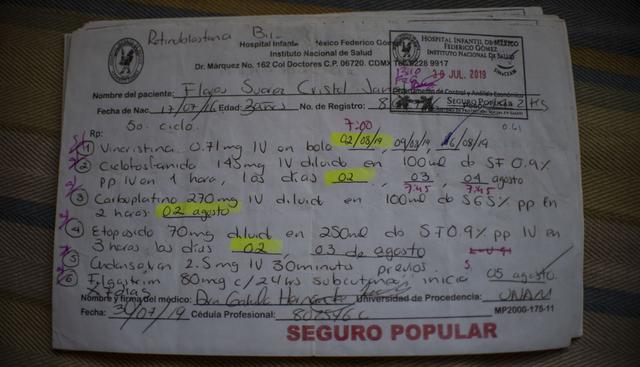 Retinoblastoma Bil
Hospital Infantil México Federico Góm
Instituto Nacional de Salud
Dr. Márquez No. 162 Col Doctores C.P. 06720. CDMX Tel. 5228 9917
HOSPITAL INFANTIL DE MEXICO
FEDERICO GÓMEZ
INSTITUTO NACIONAL DE SALUD
30 JUL. 2019
Departamento de Control y Análisis Económico
SEGURO POPULAR
Nombre del paciente: Suarez Cristal
Fecha de Nac. 17/07/16 Edad: 3 años No. de Registro:
Rp: 5o. ciclo. 7:00 0.61
1 Vincristina 0.71mg IV en bolo 02/08/19, 09/08/19, 16/08/19
2 Ciclofosfamida 143mg IV diluido en 100ml de SF 0.9%
pp IV en 1 hora, los días 02, 03, 04 agosto
7:45 7:45
3 Carboplatino 270mg IV diluido en 100ml de SG5% pp en
2 horas 02 agosto
4 Etoposido 70mg diluid en 250ml de SF 0.9% pp IV en
3 horas los días 02, 03 de agosto
5 Ondansetron 2.5mg IV 30 minutos previos.
6 Filgastrim 80mcg c/24hrs subcutaneo inicia 05 agosto.
Nombre y firma del médico: Dra Universidad de Procedencia: UNAM
Fecha: 30/07/19 Cédula Profesional: MP2000-175-11
SEGURO POPULAR